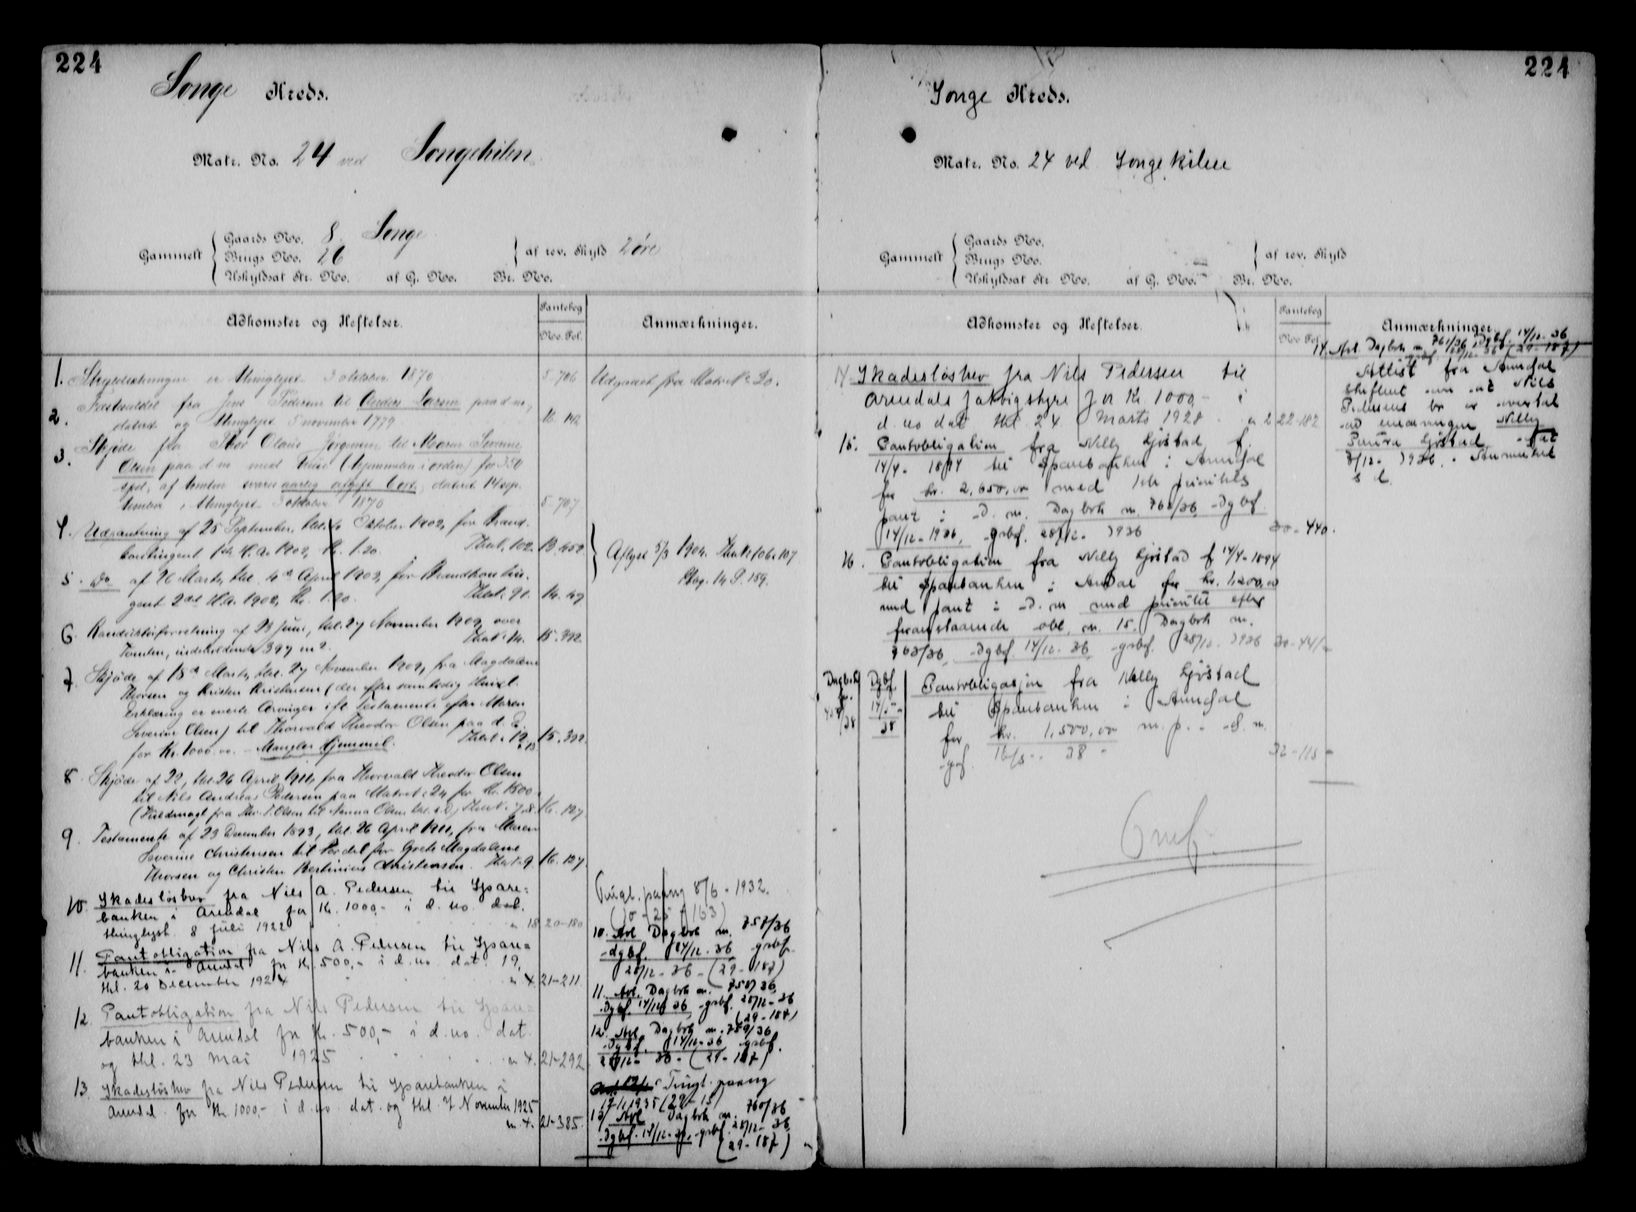 224
Songe Kreds.
Matr. No. 24 ved Songekilen
Gammelt Gaards No. 8 Songe
Brugs No. 26
Uskyldsat Str. No. af G. No. Br. No.
af rev. Skyld 2 øre
Adkomster og Heftelser.
Pantebog
No. Fol.
Anmærkninger.
1. er thinglyst 3 oktober 1870 5-706 Udgaaet fra Matr. No 20.
2. fra Jens Pedersen til Anders Larsen paa d. m.,
dateret og thinglyst 5 november 1779
3. Skjøde fra Olaus Jørgensen til Maren Severine
Olsen paa d. m. med Huus for 350
spd., af tomten svares aarlig afgift dateret 14 sep-
tember, thinglyst 3 oktober 1870 5-707
4. Udpantning af 25 September, thl. Oktober 1902, for Brand-
kontingent 1ste H.A. 1902, Kr. 1.20. 13-652
5. Do af 26 Marts, thl. 4de April 1903, for Brandkontin-
gent 2det H.A. 1902, Kr. 1.20. 14-49
Aflyst 5/3 1904.
6. af 23 Juni, thl. 27 November 1909, over
Tomten, indeholdende 397 m2. 15-392
7. Skjøde af 15de Marts, thl. 27 November 1909, fra Magdalene
Thorsen og Kristen Kristensen (der efter samtidig thinl.
Erklæring er eneste Arvinger ifl. Testamente efter Maren
Severine Olsen) til Thorvald Theodor Olsen paa d. E.
for Kr. 1000.00. - Mangler Hjemmel. 15-392
8. Skjøde af 22, thl. 26 April 1911, fra Thorvald Theodor Olsen
til Nils Andreas Pedersen paa Matr. No 24 for Kr. 1500
(Fuldmagt fra Thv. T. Olsen til Nanna Olsen thl. s. D.) 16-127
9. Testamente af 23 December 1893, thl. 26 April 1911, fra Maren
Severine Christensen til Fordel for Grete Magdalene
Thorsen og Christen Bertinius Christensen. 16-127
10. Skadesløsbrev fra Nils A. Pedersen til Spare-
banken i Arendal for Kr. 1000,- i d. no. dat.
thinglyst 8 juli 1922 20-180
Tingl. paany 8/6-1932.
10. Avl. Dagbok nr. 757/36
dgbf. 14/12-36 grbf.
28/12-36-(29-187)
11. Pantobligation fra Nils A. Pedersen til Spare-
banken i Arendal for Kr. 500,- i d. no. dat. 19,
thl. 20 December 1924 n 4. 21-211
11. Avl. Dagbok nr. 758/36
Dgbf. 14/12-36, grbf. 28/12-36
(29-187)
12. Pantobligation fra Nils Pedersen til Spare-
banken i Arendal for Kr. 500,- i d. no. dat.
og thl. 23 mai 1925 n 4. 21-292
12. Avl. Dagbok nr. 759/36
Dgbf. 14/12-36 grbf.
28/12-36-(29-187)
13. Skadesløsbrev fra Nils Pedersen til Sparebanken i
Arendal for Kr. 1000,- i d. no. dat. og thl. 7 November 1925
n. 4. 21-385.
Tingl. paany
17/1 1935 (29-15)
13/ Avl. Dagbok nr. 760/36
Dgbf. 14/12-36, grbf. 28/12-36
(29-187)
224
Songe Kreds.
Matr. No. 24 ved Songekilen
Gammelt Gaards No.
Brugs No.
Uskyldsat Str. No. af G. No. Br. No.
af rev. Skyld
Adkomster og Heftelser.
Pantebog
No. Fol.
Anmærkninger.
14. Skadesløsbrev fra Nils Pedersen til
Arendals fattigstyre for Kr. 1000,- i
d. no dat. thl. 24 Marts 1928 n 2 22-182
14. Avl. Dagbok nr. 761/36, Dgbf. 14/12-36
grbf. 28/12-36 (29-187)
Attest fra Arendal
skifterett om at Nils
Pedersens bo er overtat
av enearvingen Nelly
Gjøstad, dat
1936.
s. d.
15. Pantobligation fra Nelly Gjøstad f.
14/4-1894 til Sparebanken i Arendal
for kr. 2,650,00 med 1ste prioritets
pant i d. nr. Dagbok nr. 762/36, Dgbf.
14/12-1936, grbf. 28/12-1936 30-440.
16. Pantobligation fra Nelly Gjøstad f. 14/4-1894
til Sparebanken i Arendal for kr. 1,200,00
med pant i d. nr. med prioritet efter
foranstaaende obl. nr. 15. Dagbok nr.
763/36, Dgbf. 14/12-36 grbf. 28/12-1936 30-441
Dagbok
nr.
/38
Dgbf.
14/5
38
Pantobligasjon fra Nelly Gjøstad
til Sparebanken i Arendal
for kr. 1,500,00 m. p. i d. nr.
grf. 16/5-38- 32-115
Omf.